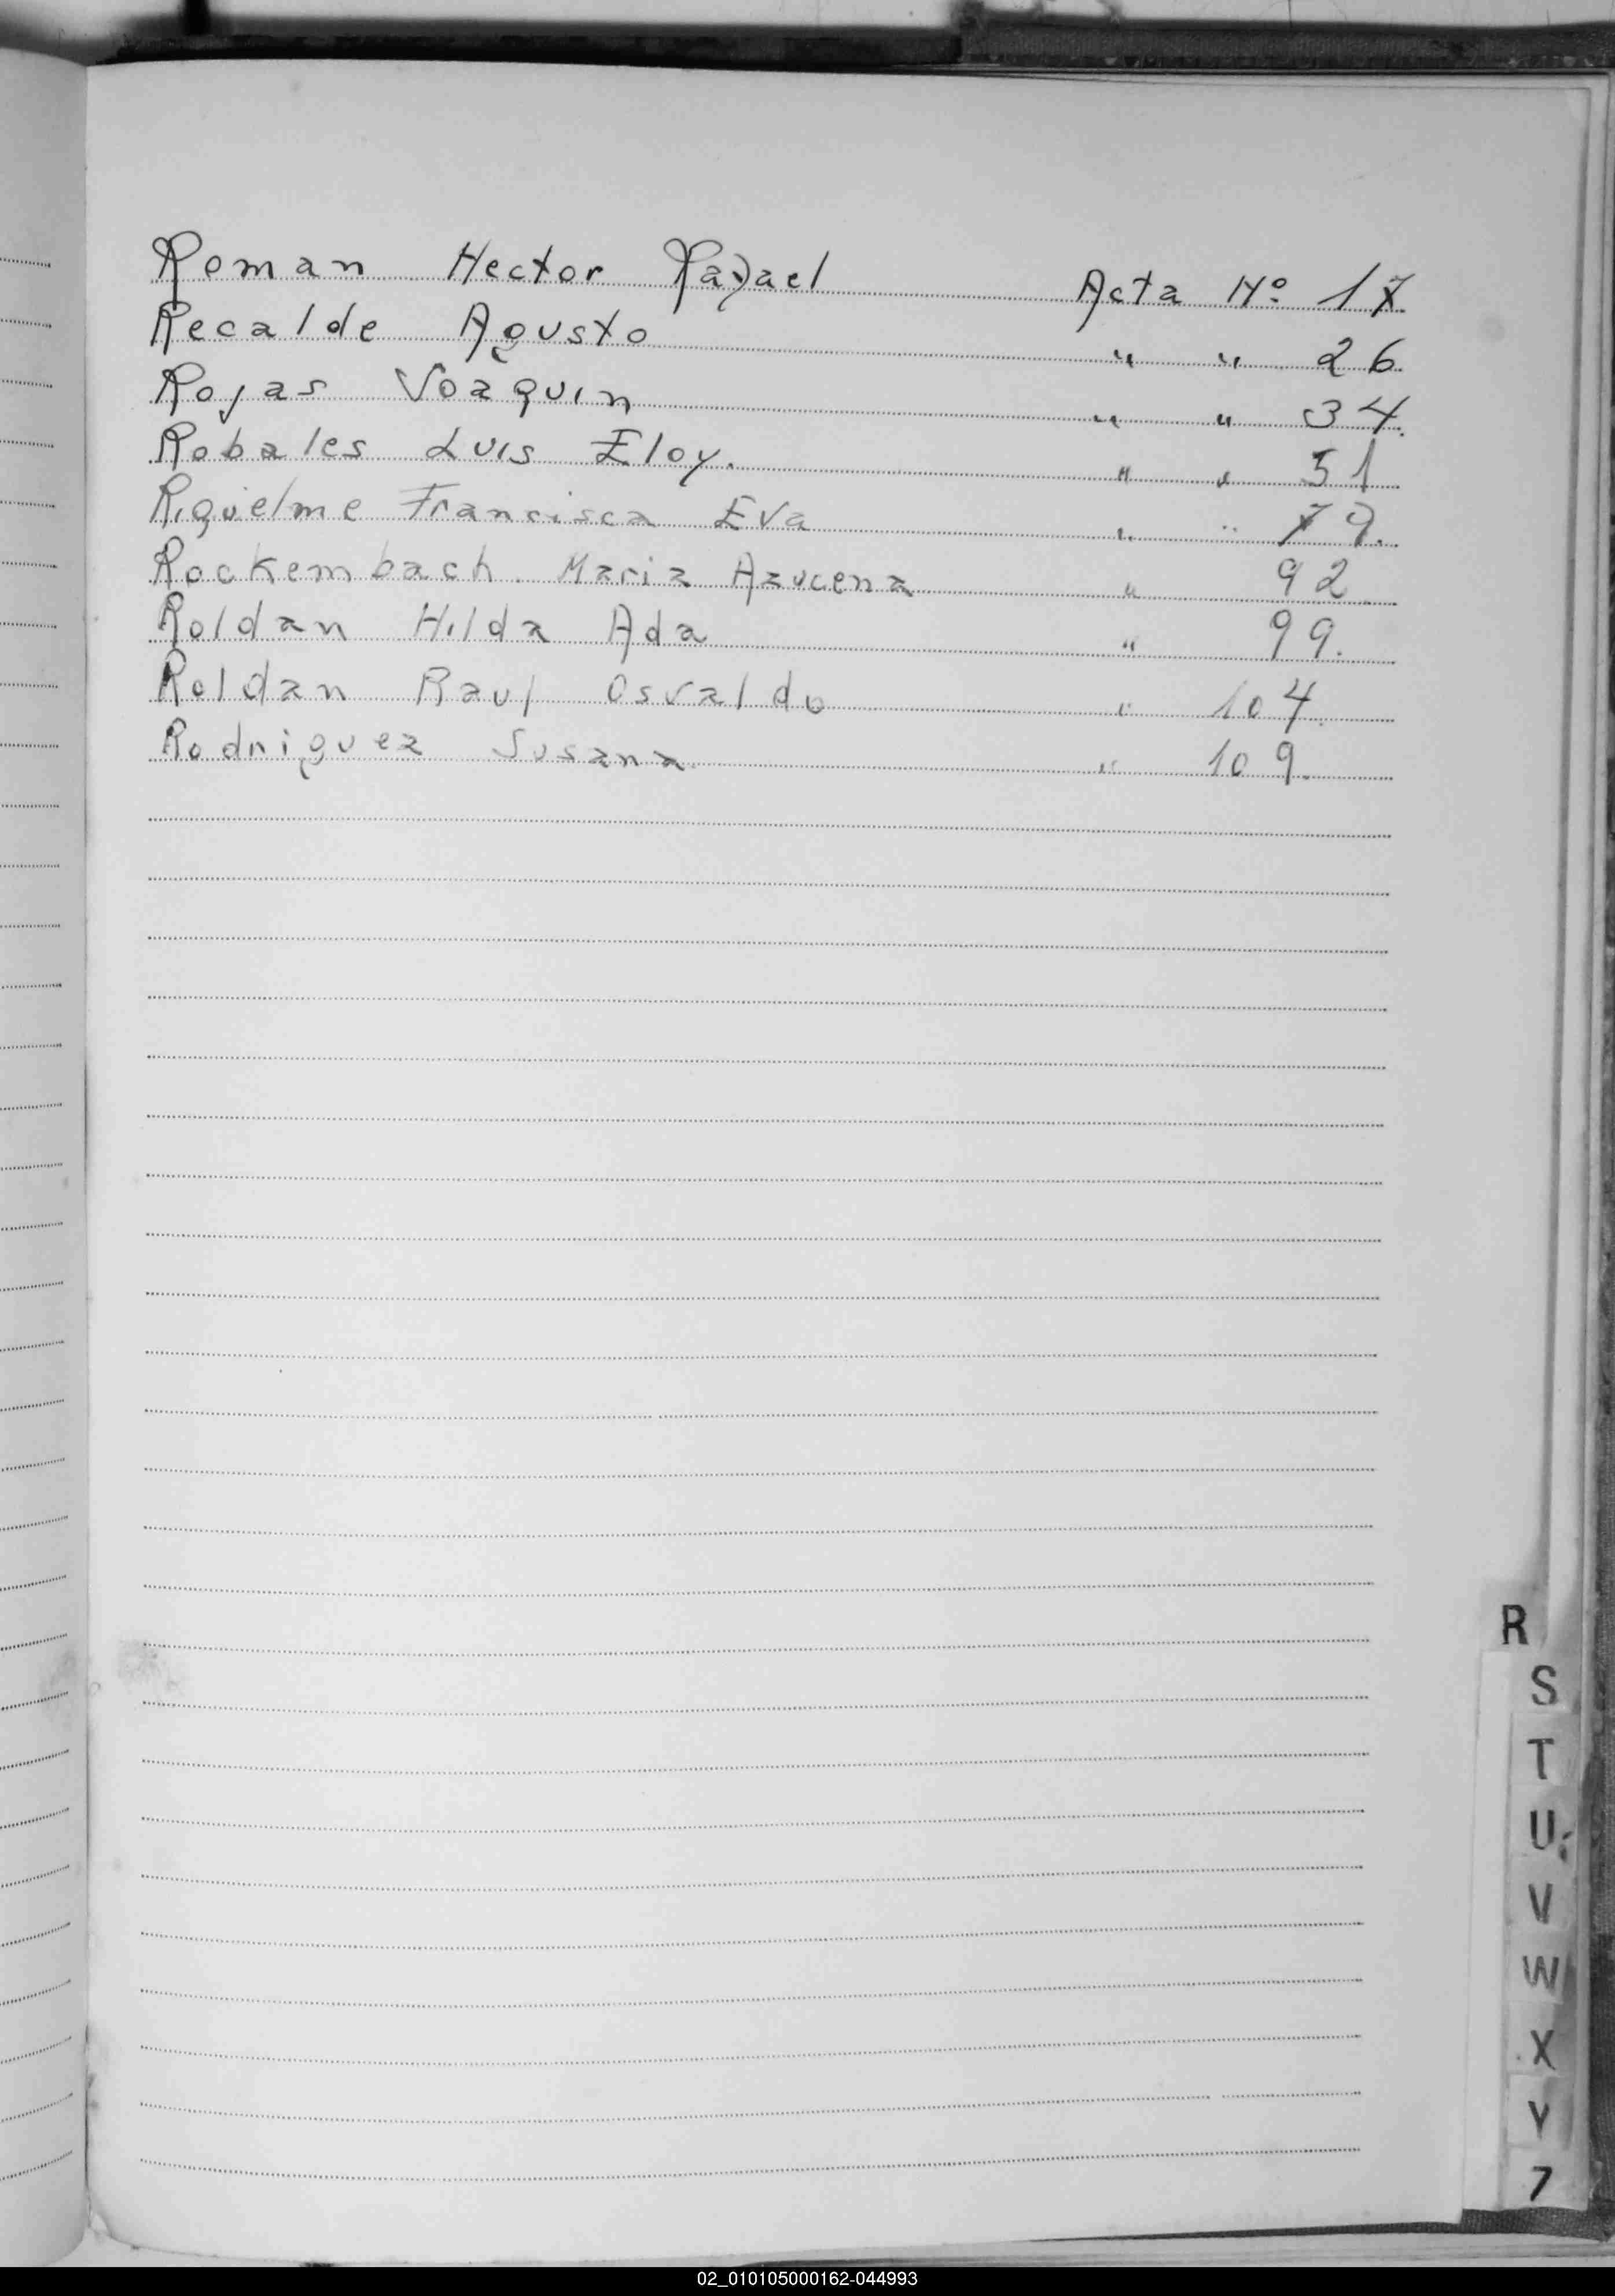 Roman Hector Rafael Acta Nº 17
Recalde Agusto " " 26
Rojas Joaquin " " 34.
Robales Luis Eloy. " " 51
Riquelme Francisca Eva " " 79.
Rockembach. Maria Azucena " 92
Roldan Hilda Ada " 99.
Roldan Raul Osvaldo " 104.
Rodriguez Susana. " 109.
R
S
T
U
V
W
X
Y
Z
02_010105000162-044993